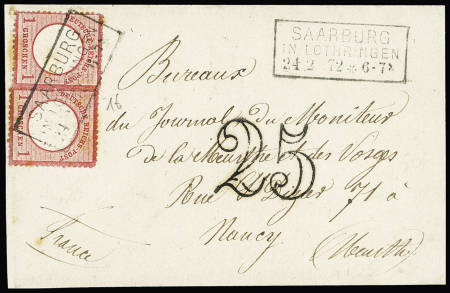 SAARBURG
IN LOTHRINGEN
24 2 72 * 6-7
DEUTSCHE REICHS-POST
1 GROSCHEN 1
DEUTSCHE REICHS-POST
1 GROSCHEN 1
SAARBURG
16
Bureaux
du Journal du Moniteur
de la Meurthe et des Vosges
25
Rue St Dizier 71 à
Nancy
France
(Meurthe)